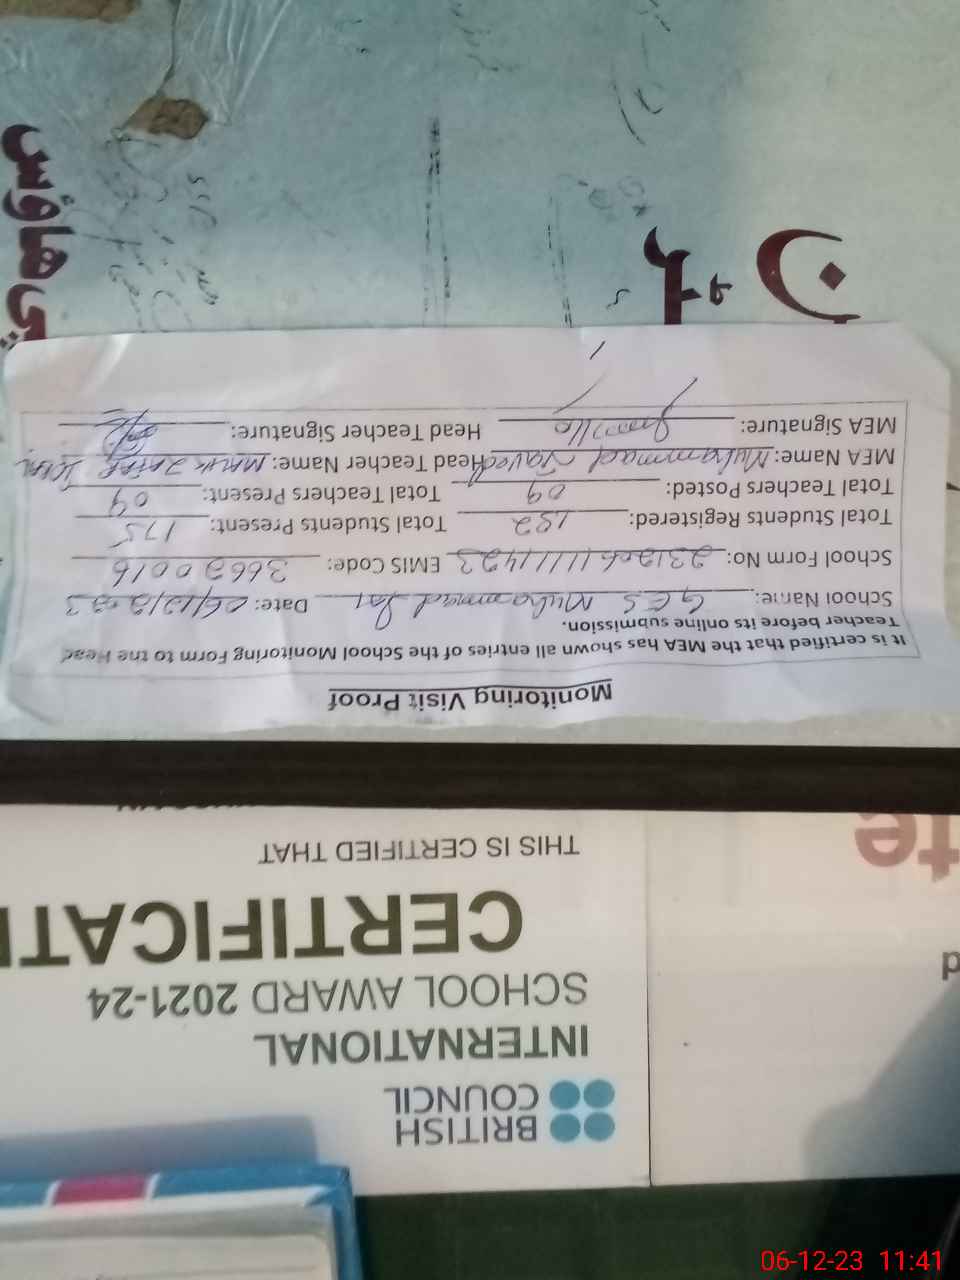 Monitoring Visit Proof
It is certified that the MEA has shown all entries of the School Monitoring Form to the Head
Teacher before its online submission.
School Name: GES Muhammad Date: 06/12/2023
School Form No: EMIS Code: 36620016
Total Students Registered: 182 Total Students Present: 175
Total Teachers Posted: 09 Total Teachers Present: 09
MEA Name: Muhammad Javed Head Teacher Name: MALIK ZAFAR IQBAL
MEA Signature: Head Teacher Signature:
BRITISH
COUNCIL
INTERNATIONAL
SCHOOL AWARD 2021-24
CERTIFICAT
THIS IS CERTIFIED THAT
te
d
ی ھاؤس
06-12-23 11:41